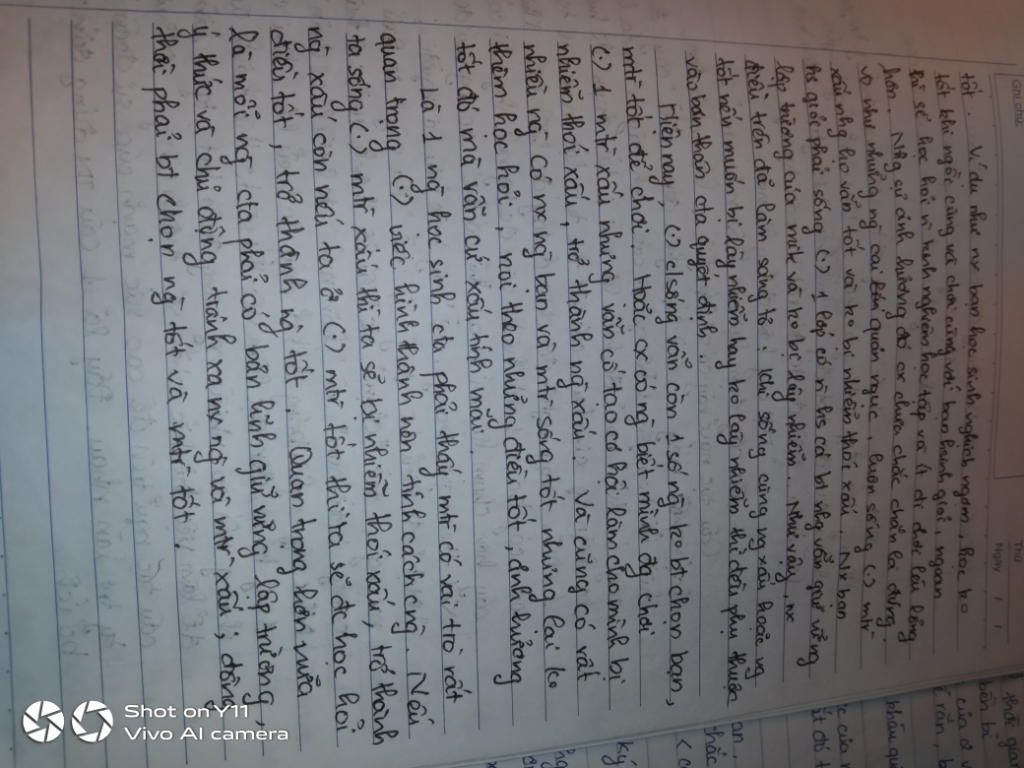 tốt. Ví dụ như nx bạn học sinh nghịch ngợm, học ko
tốt khi ngồi cùng và chơi cùng vs bạn hsinh giỏi, ngoan
thì sẽ học hỏi n kinh nghiệm học tập và ít đi đc lêu lổng
hơn. Nhg sự ảnh hưởng đó cx chưa chắc chắn là đúng.
vd như những ng cai quản ngục, luôn sống (.) mtr
xấu nhg họ vẫn tốt và ko bị nhiễm thói xấu. Nx bạn
hs giỏi phải sống (.) 1 lớp có n hs cá bt nhg vẫn giữ vững
lập trường của mk và ko bị lây nhiễm. Như vậy, nx
điều trên đã làm sáng tỏ: khi sống cùng ng xấu hoặc ng
tốt nếu muốn bị lây nhiễm hay ko lây nhiễm thì đều phụ thuộc
vào bản thân cta quyết định.
Hiện nay, (.) c/sống vẫn còn 1 số ng ko bt chọn bạn,
mtr tốt để chơi. Hoặc cx có ng biết mình đg chơi
(.) 1 mtr xấu nhưng vẫn cố tạo cơ hội làm cho mình bị
nhiễm thói xấu, trở thành ng xấu. Và cũng có rất
nhiều ng có nx ng bạn và mtr sống tốt nhưng lại ko
thèm học hỏi, noi theo những điều tốt, ảnh hưởng
tốt đó mà vẫn cứ xấu tính mãi.
Là 1 ng học sinh cta phải thấy mtr có vai trò rất
quan trọng (.) việc hình thành nên tính cách cng. Nếu
ta sống (.) mtr xấu thì ta sẽ bị nhiễm thói xấu, trở thành
ng xấu còn nếu ta ở (.) mtr tốt thì ta sẽ đc học hỏi
điều tốt, trở thành ng tốt. Quan trọng hơn nữa
là mỗi ng cta phải có bản lĩnh giữ vững lập trường,
ý thức và chủ động tránh xa nx ng và mtr xấu; đồng
thời phải bt chọn ng tốt và mtr tốt.
Shot on Y11
Vivo AI camera